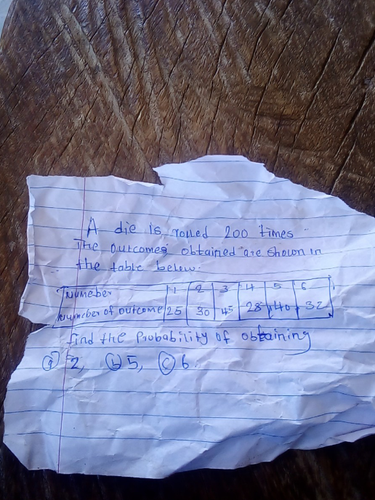 A die is rolled 200 times
The outcomes obtained are shown in
the table below.
Number 1 2 3 4 5 6
Number of outcome 25 30 45 28 40 32
find the Probability of obtaining
(a) 2, (b) 5, (c) 6.